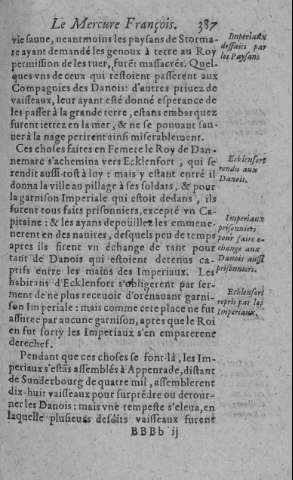 Le Mercure François. 387
vie sauue, neantmoins les paysans de Stormare
ayant demandé les genoux à terre au Roy
permission de les tuer, furẽt massacrez. Quelques
vns de ceux qui restoient passerent aux
Compagnies des Danois: d'autres priuez de
vaisseaux, leur ayant esté donné esperance de
les passer à la grande terre, estans embarquez
furent iettez en la mer, & ne se pouuant sauuer
à la nage perirent ainsi miserablement.
Ces choses faites en Femere le Roy de Dannemarc
s'achemina vers Ecklenfort, qui se
rendit aussi-tost à luy: mais y estant entré il
donna la ville au pillage à ses soldats, & pour
la garnison Imperiale qui estoit dedans, ils
furent tous faits prisonniers, excepté vn Capitaine:
& les ayans depoüillez les emmenerent
en des nauires, desquels peu de temps
apres ils firent vn échange de tant pour
tant de Danois qui estoient detenus captifs
entre les mains des Imperiaux. Les
habitans d'Ecklenfort s'obligerent par serment
de ne plus receuoir d'orénauant garnison
Imperiale: mais comme cete place ne fut
assuree par aucune garnison, apres que le Roi
en fut sorty les Imperiaux s'en emparerent
derechef.
Pendant que ces choses se font-là, les Imperiaux
s'estãs assemblés à Appenrade, distant
de Sunderbourg de quatre mil, assemblerent
dix-huit vaisseaux pour surprẽdre ou detourner
les Danois: mais vne tempeste s'éleua, en
laquelle plusieurs desdits vaisseaux furent
BBBb ij
Imperiaux
desfaits par
les Paysans
Ecklenfort
rendu aux
Danois.
Imperiaux
prisonniers
pour faire eschange
aux
Danois aussi
prisonniers.
Ecklenfort
repris par les
Imperiaux.